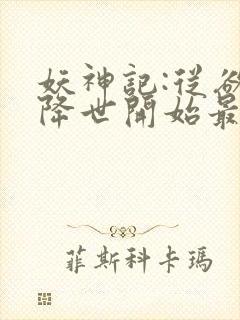 妖神記:從
降世開始最
菲斯科卡瑪